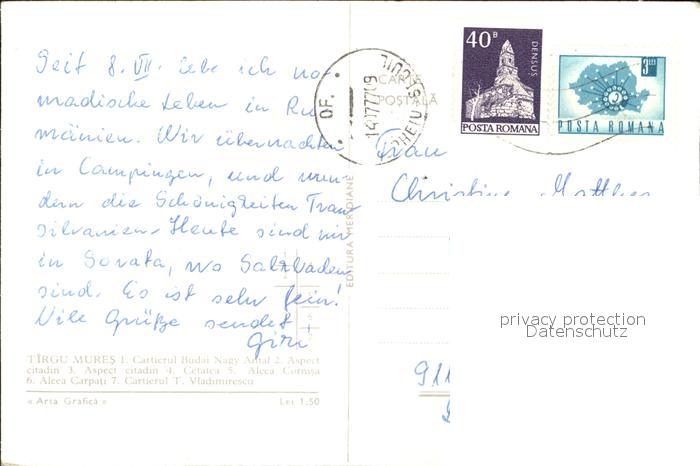 Seit 8. VII. lebe ich no-
madische Leben in Ru-
mänien. Wir übernachten
in Campingen, und wun-
dern die Schönigkeiten Tran-
silvanien. Heute sind wir
in Sovata, wo Salzbaden
sind. Es ist sehr fein!
Vile Grüße sendet
TÎRGU MUREȘ 1. Cartierul Budai Nagy Antal 2. Aspect
citadin 3. Aspect citadin 4. Cetatea 5. Aleea Cornișa
6. Aleea Carpați 7. Cartierul T. Vladimirescu
« Arta Grafică » Lei 1:50
EDITURA MERIDIANE
CARTE
POȘTALĂ
OF.
40 B
DENSUȘ
POSTA ROMANA
3 LEI
POSTA ROMANA
Frau
Christine
privacy protection
Datenschutz
911